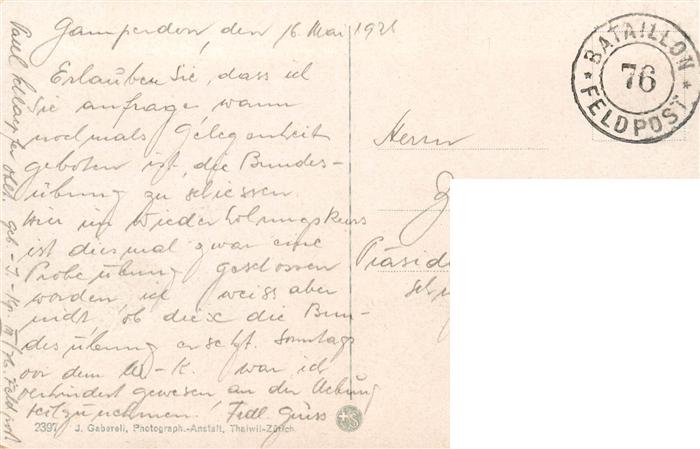 Gamperdon, den 16. Mai 1921
Erlauben Sie, dass ich
Sie anfrage wann
nochmals Gelegenheit
geboten ist, die Bundes-
übung zu schiessen.
Hier im Wiederholungskurs
ist diesmal zwar eine
Probeübung geschossen
worden ich weiss aber
nicht, ob diese die Bun-
desübung ersetzt. Sonntags
vor dem W.-K. war ich
verhindert gewesen an der Uebung
teilzunehmen! Frdl. Gruss
Paul
Geb.-I.-Kp. III/76. Feldpost
BATAILLON
76
FELDPOST
Herrn
Präside
Sch
2397 J. Gaberell, Photograph.-Anstalt, Thalwil-Zürich.